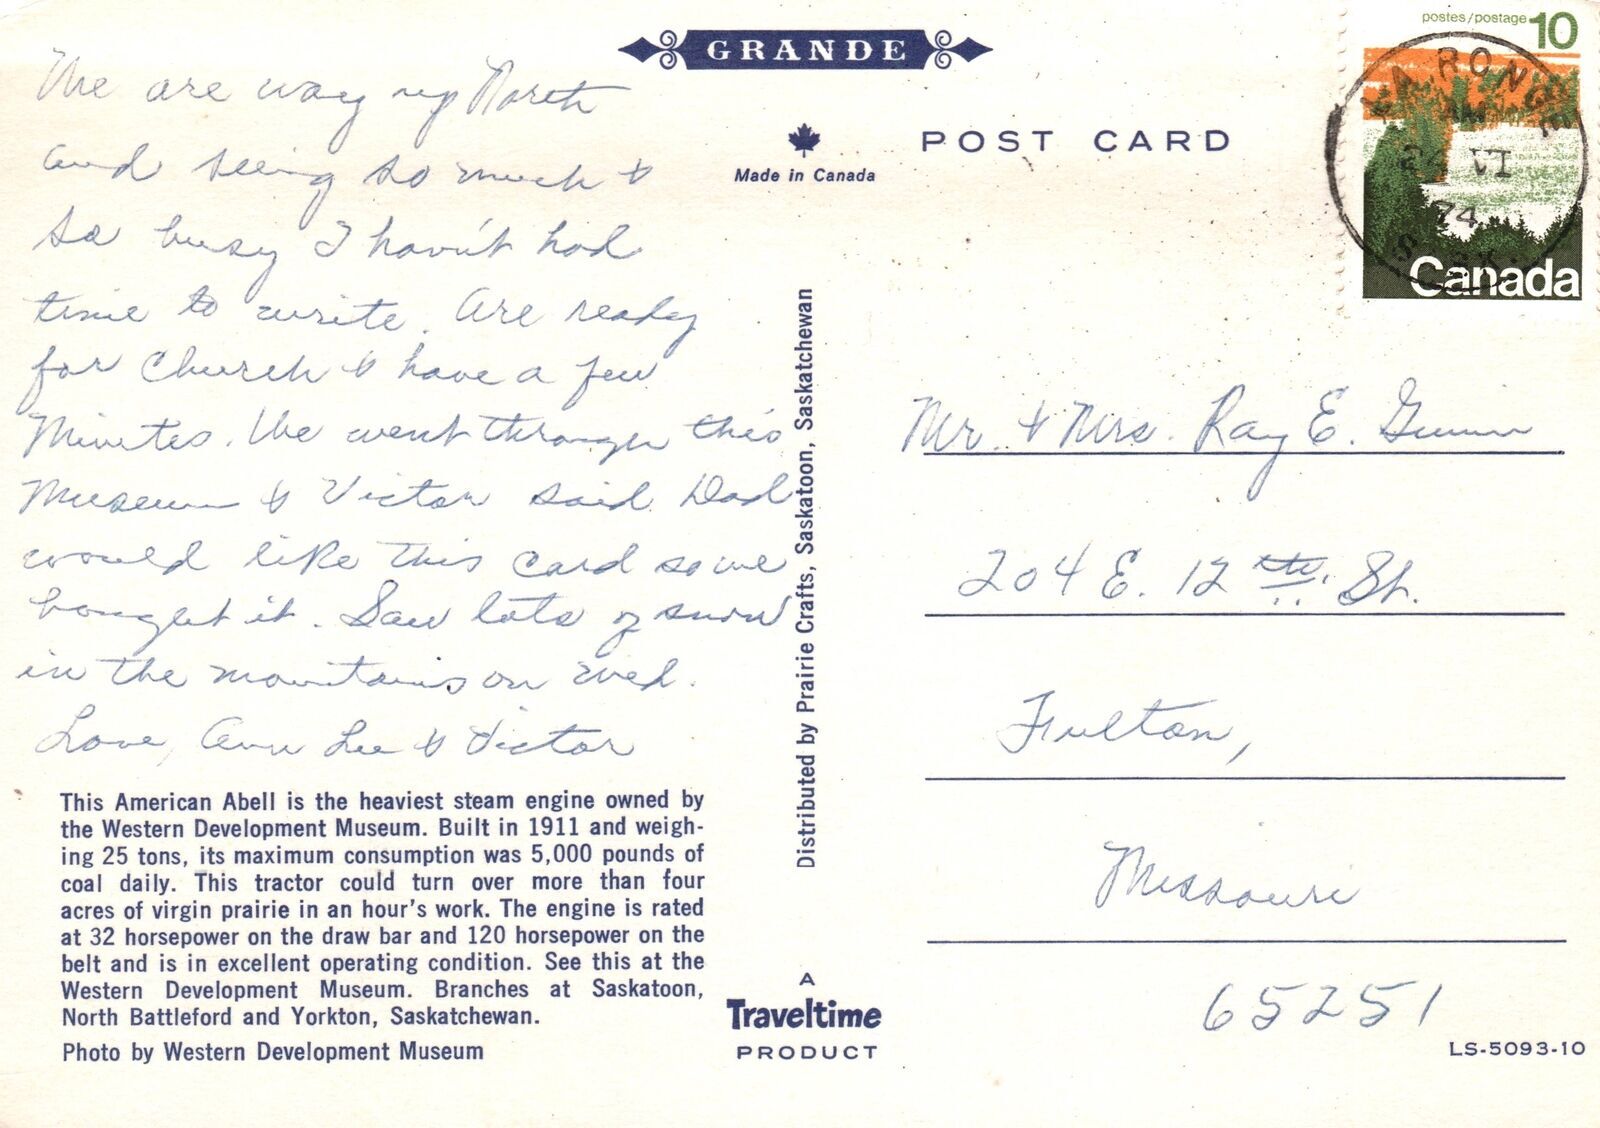 GRANDE
POST CARD
Made in Canada
We are way up North
and seeing so much &
so busy I havn't had
time to write. Are ready
for Church & have a few
Minutes. We went through this
Museum & Victor said Dad
would like this card so we
bought it. Saw lots of snow
in the mountains on Wed.
Love, Ann Lee & Victor
This American Abell is the heaviest steam engine owned by
the Western Development Museum. Built in 1911 and weigh-
ing 25 tons, its maximum consumption was 5,000 pounds of
coal daily. This tractor could turn over more than four
acres of virgin prairie in an hour's work. The engine is rated
at 32 horsepower on the draw bar and 120 horsepower on the
belt and is in excellent operating condition. See this at the
Western Development Museum. Branches at Saskatoon,
North Battleford and Yorkton, Saskatchewan.
Photo by Western Development Museum
Distributed by Prairie Crafts, Saskatoon, Saskatchewan
A
Traveltime
PRODUCT
postes/postage 10
Canada
LA RONGE
AM
VI
74
Mr. & Mrs. Ray E. Gunn
204 E. 12th. St.
Fulton,
Missouri
65251
LS-5093-10